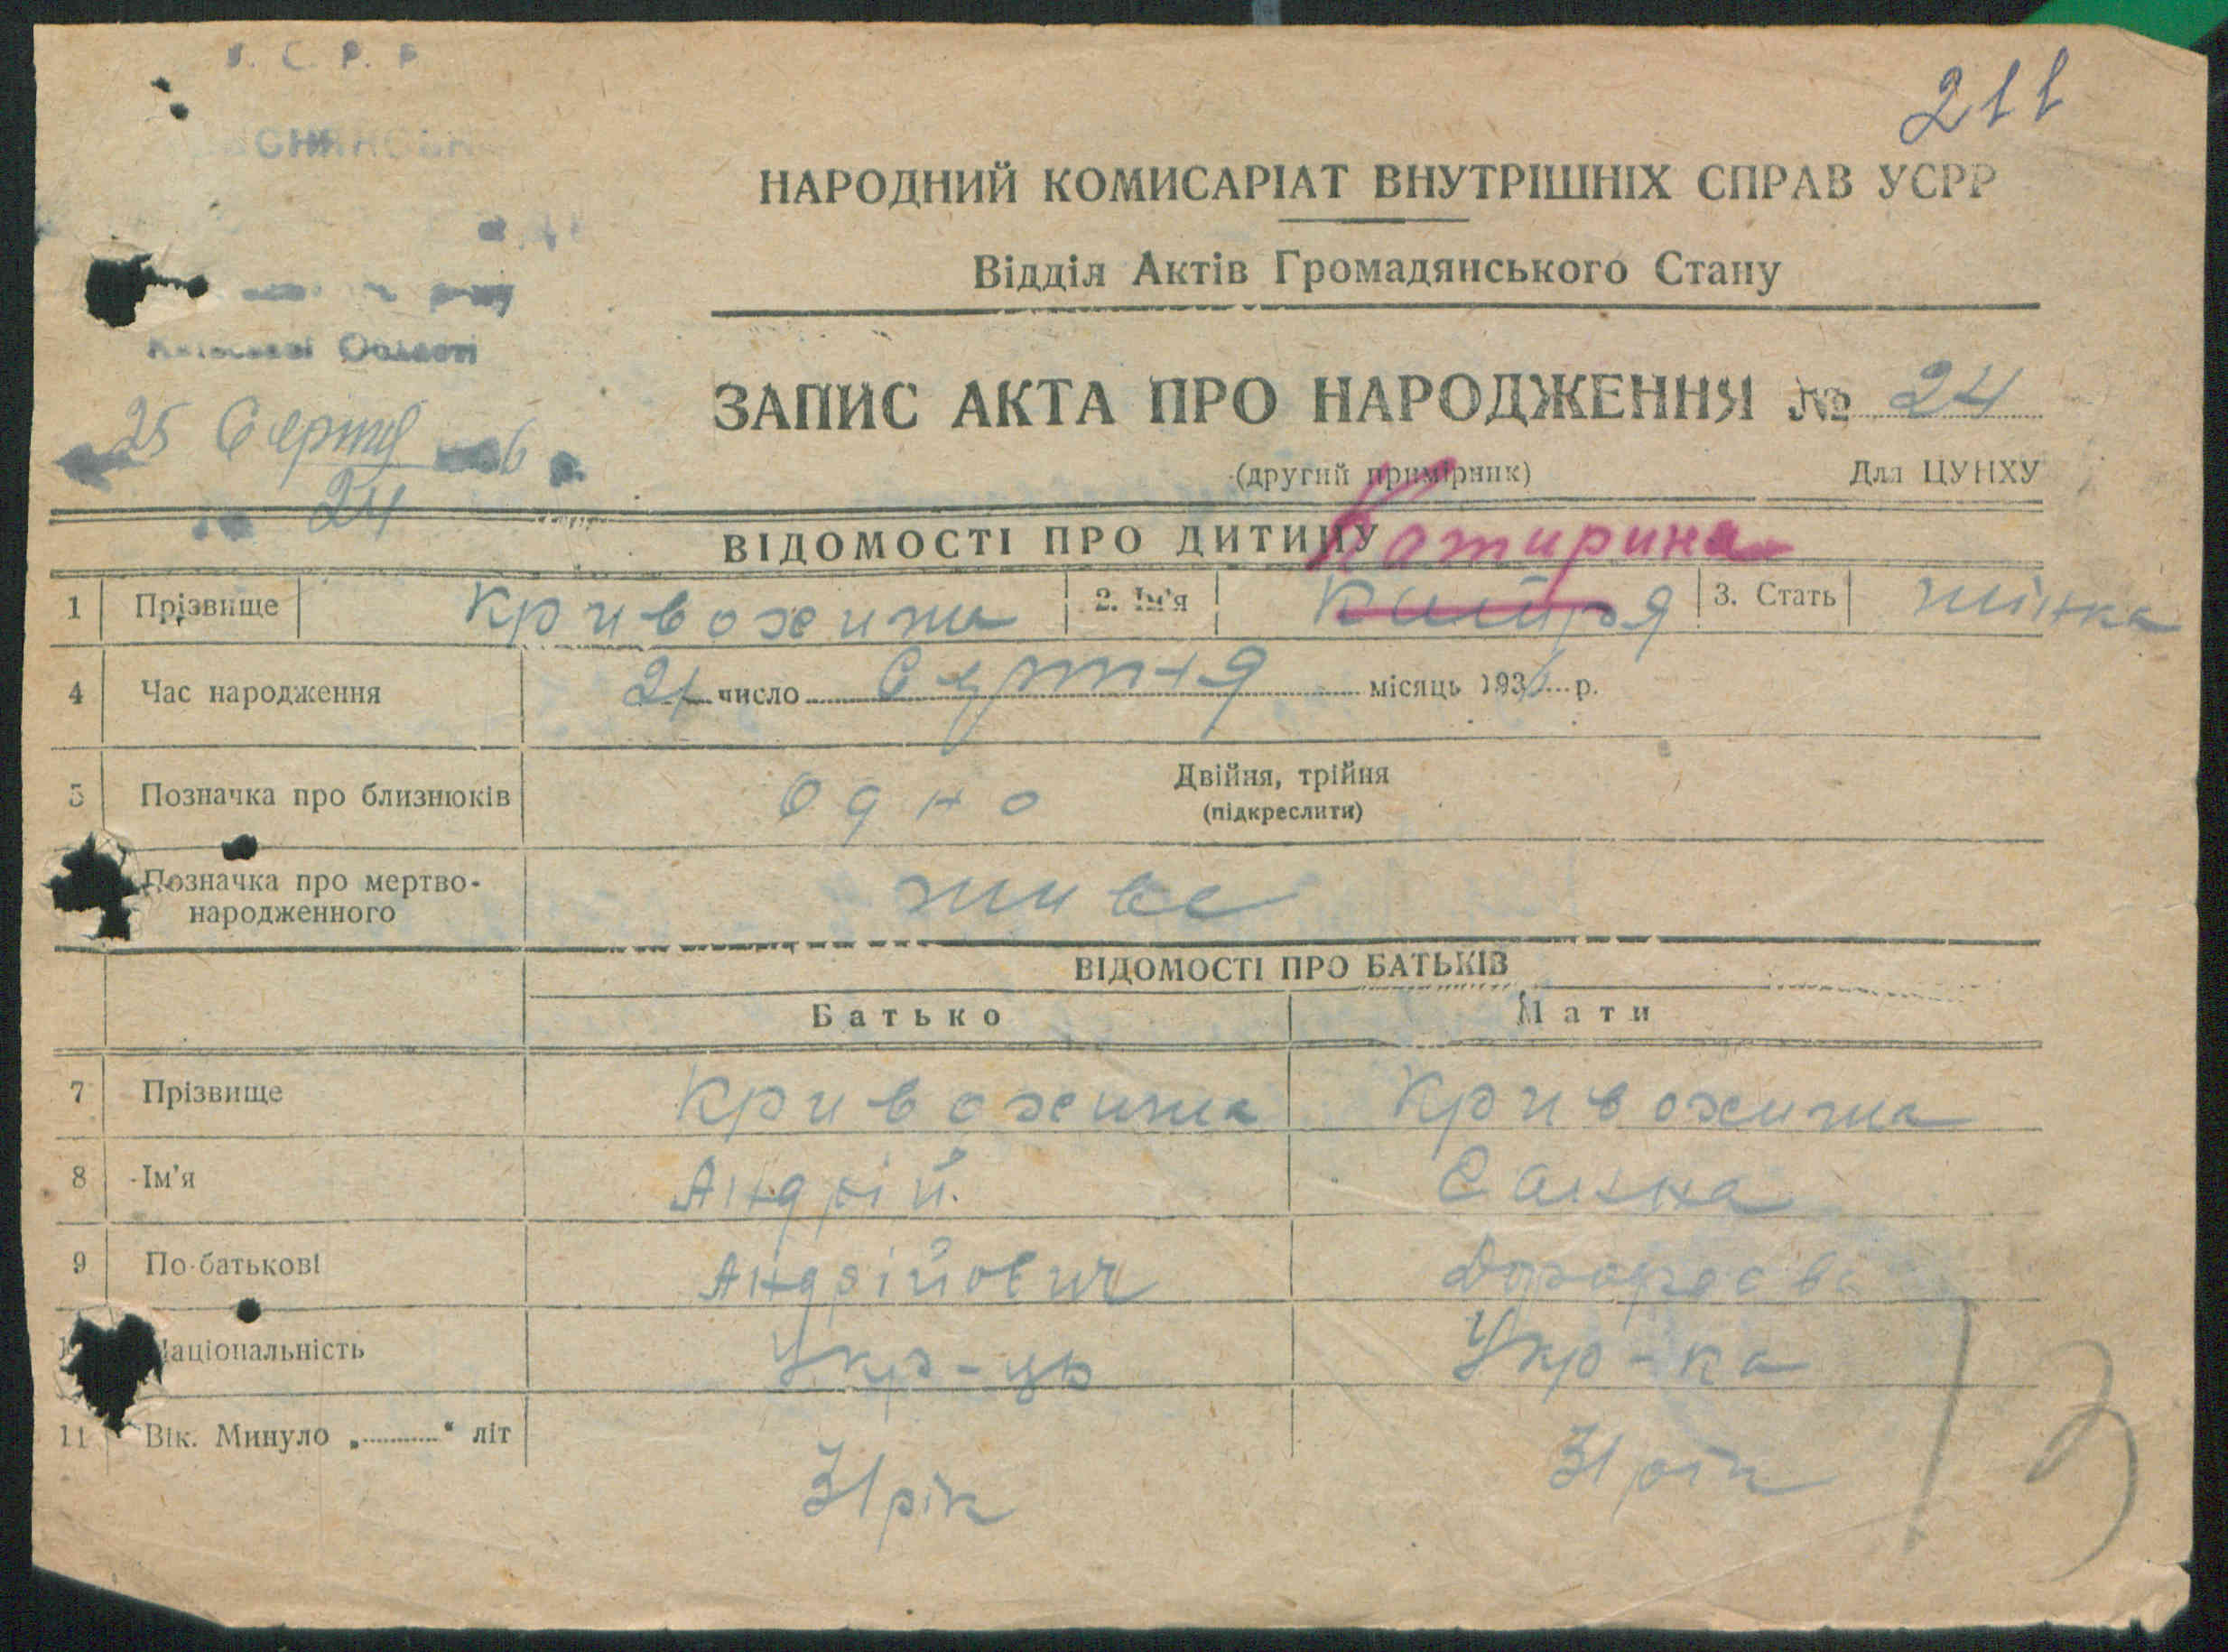 У. С. Р. Р
211
НАРОДНИЙ КОМИСАРІАТ ВНУТРІШНІХ СПРАВ УСРР
Відділ Актів Громадянського Стану
Київської Області
ЗАПИС АКТА ПРО НАРОДЖЕННЯ № 24
25 Серпня 6 р.
(другий примірник) Для ЦУНХУ
№ 24
ВІДОМОСТІ ПРО ДИТИНУ Катирина
1 Прізвище Кривохижа 2. Ім'я Катря 3. Стать жінка
4 Час народження 21 число Серпня місяць 1936 р.
5 Позначка про близнюків Одно Двійня, трійня
(підкреслити)
Позначка про мертво-
народженного живе
ВІДОМОСТІ ПРО БАТЬКІВ
Батько Мати
7 Прізвище Кривохижа Кривохижа
8 Ім'я Андрій
9 По-батькові Андрійович
Національність Укр-ць Укр-ка
11 Вік. Минуло „ “ літ 31 рік 31 рік